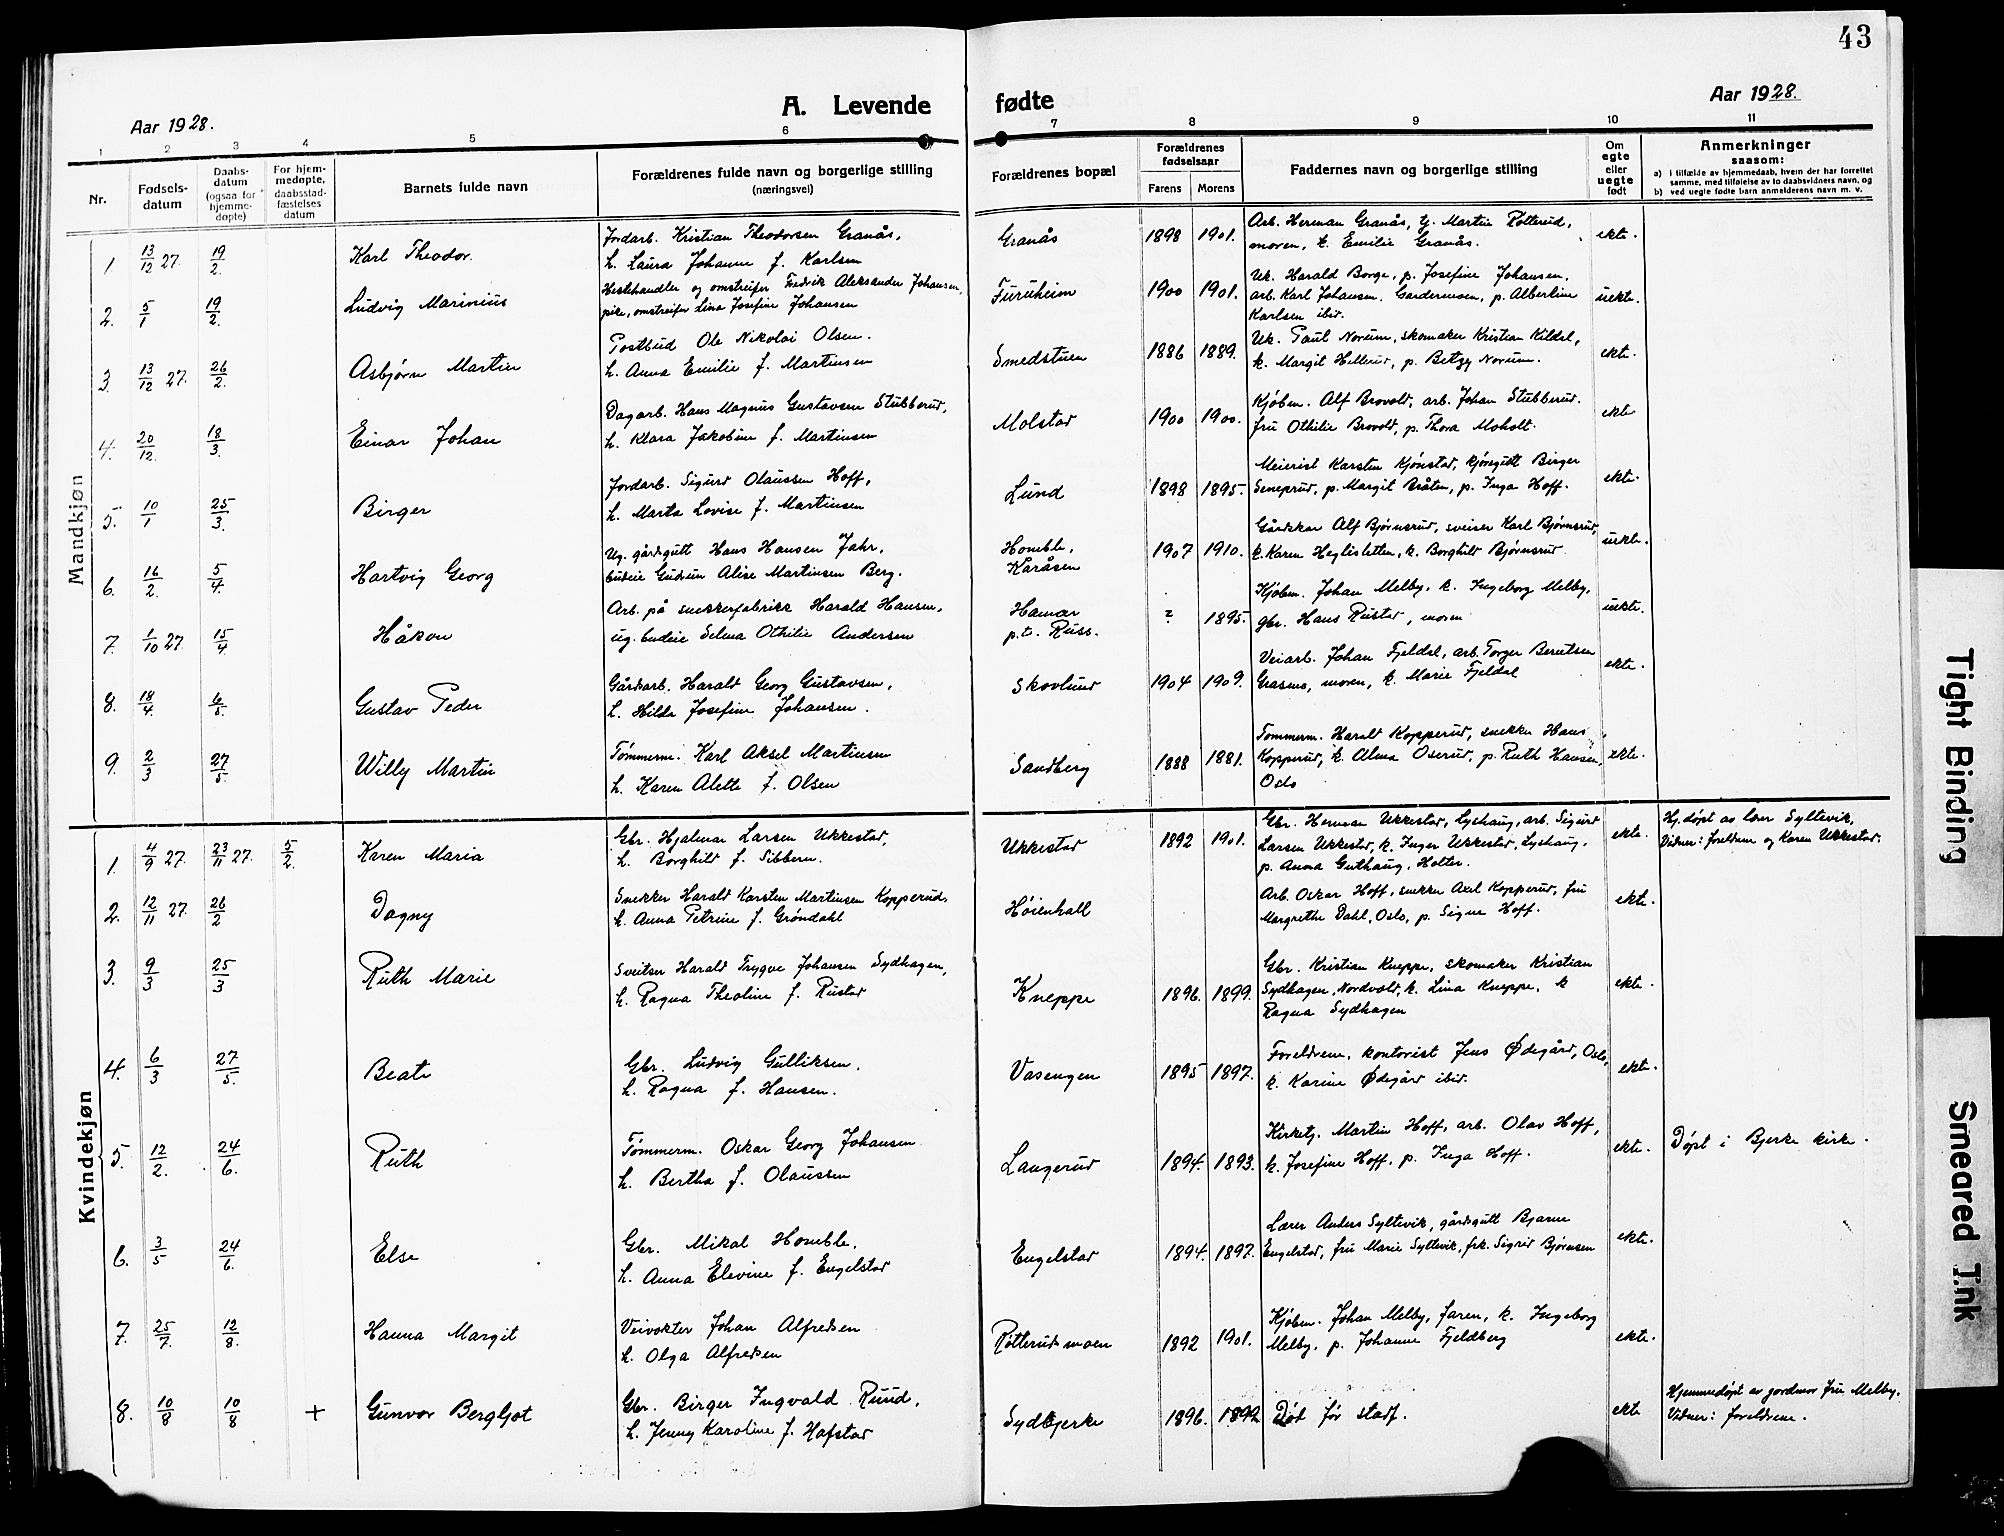 43
A. Levende fødte
Aar 1928.
Aar 1928.
1 2 3 4 5 6 7 8 9 10 11
Nr.
Fødsels-
datum
Daabs-
datum
(ogsaa for
hjemme-
døpte)
For hjem-
medøpte,
daabsstad-
fæstelses
datum
Barnets fulde navn
Forældrenes fulde navn og borgerlige stilling
(næringsvei)
Forældrenes bopæl
Forældrenes
fødselsaar
Farens Morens
Faddernes navn og borgerlige stilling
Om
egte
eller
uegte
født
Anmerkninger
saasom:
a) i tilfælde av hjemmedaab, hvem der har forrettet
samme, med tilføielse av to daabsvidners navn, og
b) ved uegte fødte barn anmelderens navn m. v.
Mandkjøn
1. 13/12 27. 19/2. Karl Theodor.
Jordarb. Kristian Theodorsen Granås,
h. Laura Johanne f. Karlsen
Granås 1898 1901.
Arb. Herman Granås, tj. Martin Rotterud,
moren, k. Emilie Granås.
ekte.
2. 5/1 19/2. Ludvig Marinius
Hestehandler og omstreifer Fredrik Aleksander Johansen,
pike, omstreifer Lina Josefine Johansen
Furuheim 1900 1901.
Uk. Harald Borge, p. Josefine Johansen,
arb. Karl Johansen, Gardermoen, p. Albertine
Karlsen ibid.
uekte.
3. 13/12 27. 26/2. Asbjørn Martin
Postbud Ole Nikolai Olsen.
h. Anna Emilie f. Martinsen
Smedstuen 1886 1889.
Uk. Paul Norum, skomaker Kristian Kildal,
k. Margit Hellerud, p. Betzy Norum.
ekte.
4. 20/12. 18/3. Einar Johan
Dagarb. Hans Magnus Gustavsen Stubberud,
h. Klara Jakobine f. Martinsen
Molstad 1900 1900.
Kjøbm. Alf Brovold, arb. Johan Stubberud.
fru Othilie Brovold, p. Thora Moholt.
ekte
5. 10/1 25/3. Birger
Jordarb. Sigurd Olaussen Hoff,
h. Marta Lovise f. Martinsen
Lund 1898 1895.
Meierist Karsten Kjønstad, kjøregutt Birger
Seneprud, p. Margit Bråten, p. Inga Hoff.
ekte.
6. 16/2. 5/4. Hartvig Georg
Ug. gårdsgutt Hans Hansen Jahr,
budeie Gudrun Alise Martinsen Berg.
Homble,
Karåsen
1907 1910.
Gårdskar Alf Bjørnsrud, sveiser Karl Bjørnsrud,
k. Karen Heglisletten, k. Borghild Bjørnsrud.
uekte.
7. 1/10 27. 15/4. Håkon
Arb. på snekkerfabrikk Harald Hansen,
ug. budeie Selma Othilie Andersen
Hamar
p.t. Russ.
? 1895.
Kjøbm. Johan Melby, k. Ingeborg Melby,
gbr. Hans Rustad, moren
uekte.
8. 18/4. 6/5. Gustav Peder
Gårdsarb. Harald Georg Gustavsen,
h. Hilda Josefine Johansen.
Skovlund 1904 1909.
Veiarb. Johan Fjeldal, arb. Torger Berntsen
Grasmo, moren, k. Marie Fjeldal
ekte.
9. 2/3 27/5. Willy Martin
Tømmerm. Karl Aksel Martinsen
h. Karen Alette f. Olsen
Sandberg 1888 1881.
Tømmerm. Harald Kopperud, snekker Hans
Kopperud, k. Alma Oserud, p. Ruth Hansen,
Oslo
ekte.
Kvindekjøn
1. 4/9 27. 23/11 27. 5/2. Karen Maria
Gbr. Hjalmar Larsen Ukkestad,
h. Borghild f. Sibbern.
Ukkestad 1892 1901.
Gbr. Herman Ukkestad, Lyshaug, arb. Sigurd
Larsen Ukkestad, k. Inger Ukkestad, Lyshaug,
p. Anna Guthaug, Holter.
ekte.
Hj. døpt av lærer Syltevik.
Vidner: foreldrene og Karen Ukkestad.
2. 12/11 27. 26/2 Dagny
Snekker Harald Karsten Martinsen Kopperud,
h. Anna Petrine f. Grøndahl
Høienhall
Arb. Oskar Hoff, snekker Axel Kopperud, fru
Margrethe Dahl, Oslo, p. Signe Hoff.
ekte.
3. 9/3 25/3 Ruth Marie
Sveitser Harald Trygve Johansen Sydhagen,
h. Ragna Theoline f. Rustad
Kneppe 1896. 1899.
Gbr. Kristian Kneppe, skomaker Kristian
Sydhagen, Nordvold, k. Lina Kneppe, k
Ragna Sydhagen
ekte.
4. 6/3 27/5. Beate
Gbr. Ludvig Gulliksen.
h. Ragna f. Hansen.
Vasengen 1895 1897.
Foreldrene, kontorist Jens Ødegård, Oslo,
k. Karine Ødegård ibid.
ekte.
5. 12/2. 24/6. Ruth
Tømmerm. Oskar Georg Johansen
h. Bertha f. Olaussen
Langerud 1894. 1893.
Kirketj. Martin Hoff, arb. Olav Hoff,
k. Josefine Hoff, p. Inga Hoff.
ekte.
Døpt i Bjerke kirke.
6. 3/5 24/6. Else
Gbr. Mikal Homble,
h. Anna Elevine f. Engelstad
Engelstad 1894. 1897.
Lærer Anders Syltevik, gårdsgutt Bjarne
Engelstad, fru Marie Syltevik, frk. Sigrid Bjørnsen
ekte.
7. 25/7. 12/8. Hanna Margit
Veivokter Johan Alfredsen
h. Olga Alfredsen
Rotterudsmoen 1892 1901.
Kjøbm. Johan Melby, faren, k. Ingeborg
Melby, p. Johanne Fjeldberg
ekte.
8. 10/8 10/8 + Gunvor Bergljot
Gbr. Birger Ingvald Ruud,
h. Jenny Karoline f. Hafstad
Sydbjerke 1896. 1892
Død før stadf.
ekte
Hjemmedøpt av jordmor fru Melby.
Vidner: foreldrene.
Tight Binding
Smeared Ink